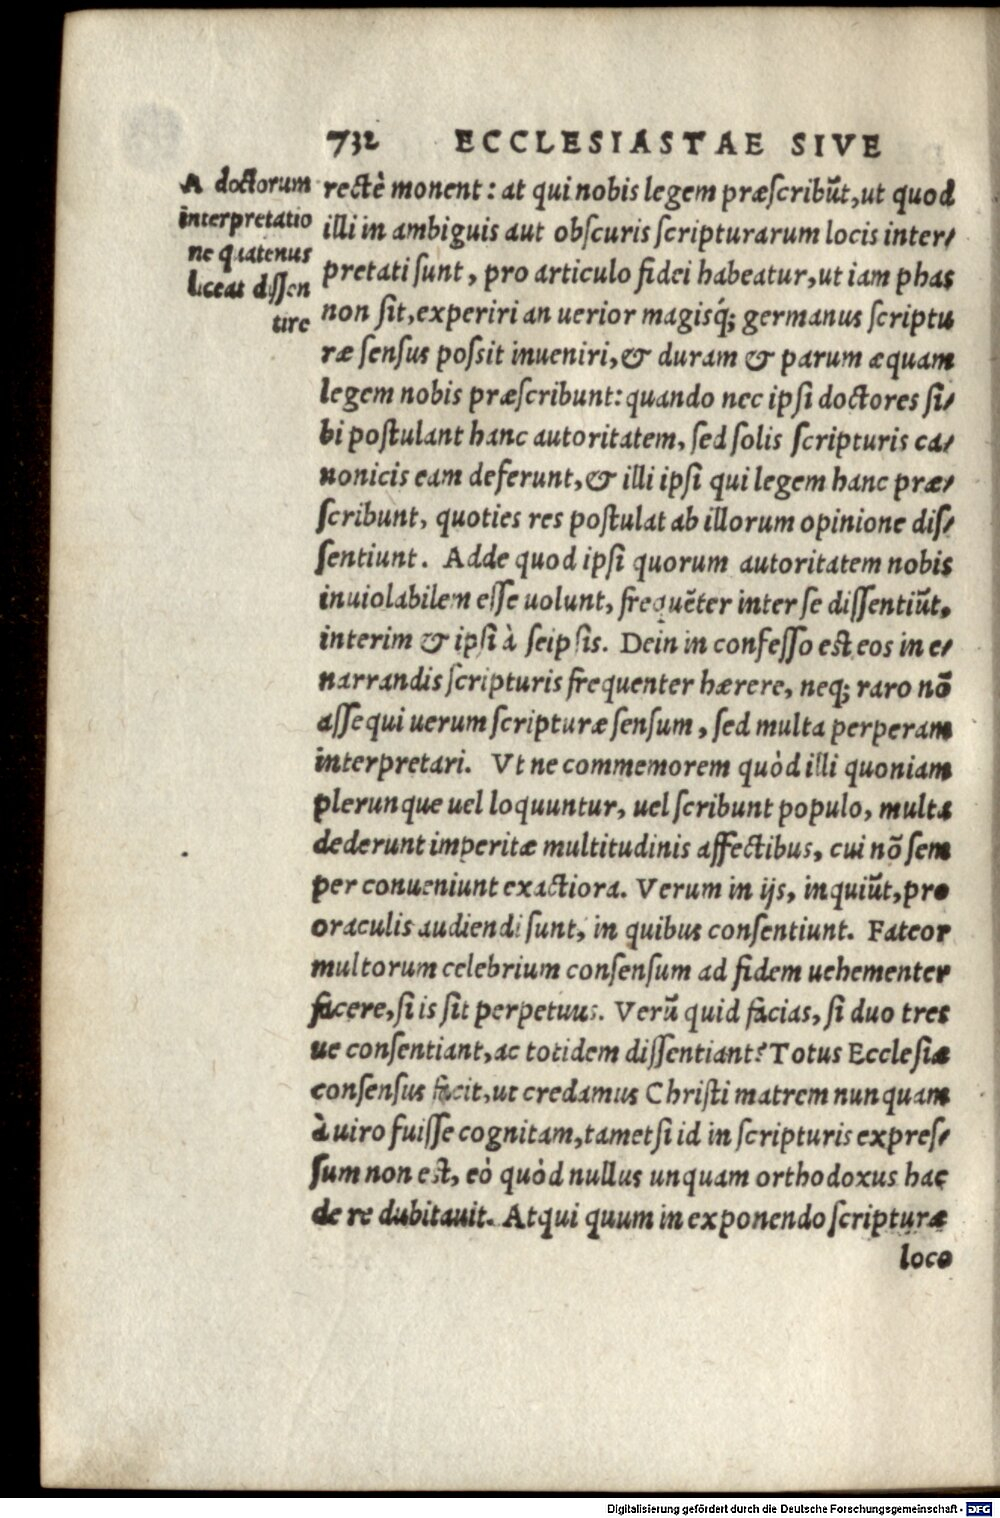 732 ECCLESIASTAE SIVE
A doctorum
interpretatio
ne quatenus
liceat dissen
tire
rectè monent: at qui nobis legem præscribūt, ut quod
illi in ambiguis aut obscuris scripturarum locis inter/
pretati sunt, pro articulo fidei habeatur, ut iam phas
non sit, experiri an uerior magisq́; germanus scriptu
ræ sensus possit inueniri, & duram & parum æquam
legem nobis præscribunt: quando nec ipsi doctores si/
bi postulant hanc autoritatem, sed solis scripturis ca/
nonicis eam deferunt, & illi ipsi qui legem hanc præ/
scribunt, quoties res postulat ab illorum opinione dis/
sentiunt. Adde quod ipsi quorum autoritatem nobis
inuiolabilem esse uolunt, frequēter inter se dissentiūt,
interim & ipsi à seipsis. Dein in confesso est eos in e/
narrandis scripturis frequenter hærere, neq; raro nō
assequi uerum scripturæ sensum, sed multa perperam
interpretari. Vt ne commemorem quòd illi quoniam
plerunque uel loquuntur, uel scribunt populo, multa
dederunt imperitæ multitudinis affectibus, cui nō sem
per conueniunt exactiora. Verum in ijs, inquiūt, pro
oraculis audiendi sunt, in quibus consentiunt. Fateor
multorum celebrium consensum ad fidem uehementer
facere, si is sit perpetuus. Verū quid facias, si duo tres
ue consentiant, ac totidem dissentiant? Totus Ecclesiæ
consensus facit, ut credamus Christi matrem nunquam
à uiro fuisse cognitam, tametsi id in scripturis expres/
sum non est, eò quòd nullus unquam orthodoxus hac
de re dubitauit. Atqui quum in exponendo scripturæ
loco
Digitalisierung gefördert durch die Deutsche Forschungsgemeinschaft - DFG